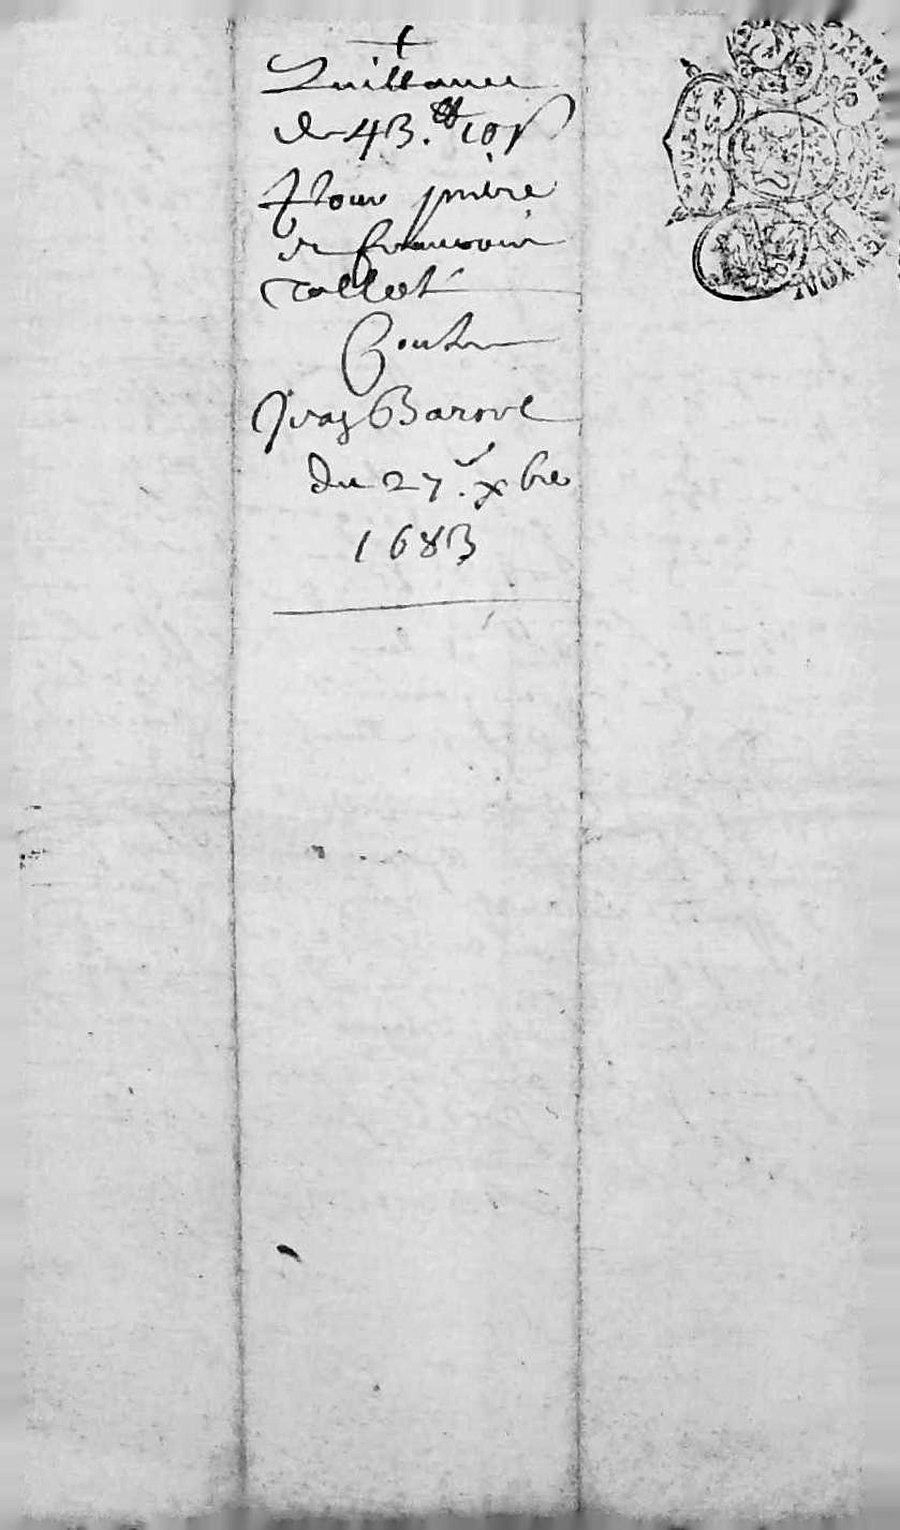 Quittance
de 43.tt 10 s
Pour pierre
et francois
Collet
Contre
Jvaz Barove
du 27.e xbre
1683